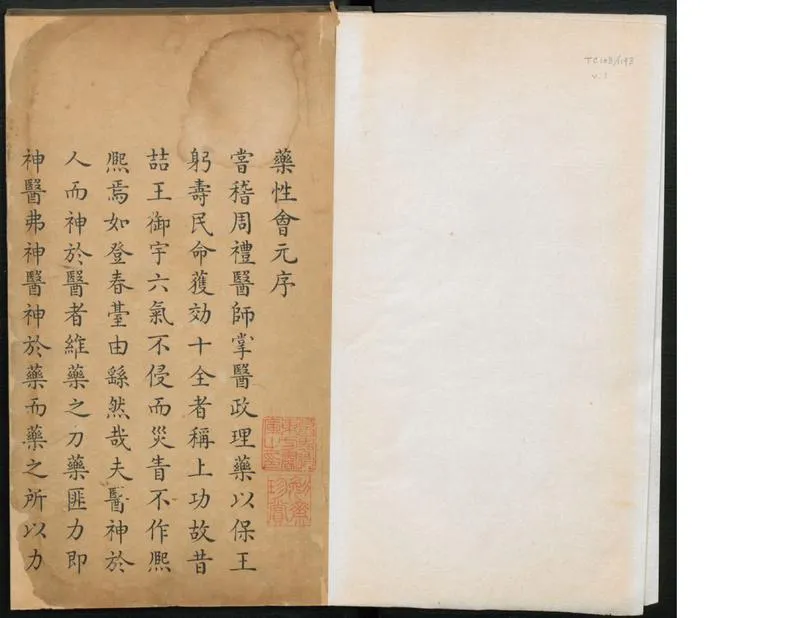 藥性會元序
嘗稽周禮醫師掌醫政理藥以保王
躬壽民命獲効十全者稱上功故昔
喆王御宇六氣不侵而災眚不作熙
熙焉如登春臺由繇然哉夫醫神於
人而神於醫者維藥之刀藥匪力即
神醫弗神醫神於藥而藥之所以力
珍賞
v.1